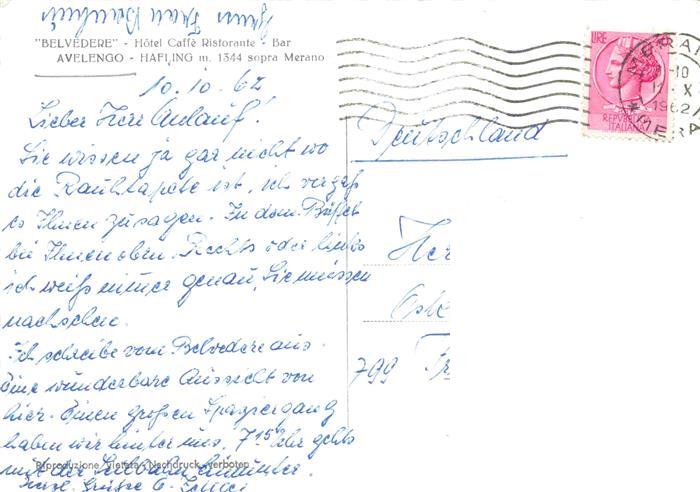 "BELVEDERE" - Hôtel Caffè Ristorante - Bar
AVELENGO - HAFLING m. 1344 sopra Merano
10.10.62
Lieber Herr Anlauf!
Sie wissen ja gar nicht wo
die Rauhtapete ist, ich vergaß
es Ihnen zu sagen. In dem Büffet
bei Ihnen oben. Rechts oder links
ich weiß nimmer genau, Sie müssen
nachsehen.
Ich schreibe vom Belvedere aus.
Eine wunderbare Aussicht von
hier. Einen großen Spaziergang
haben wir hinter uns. 7 15 Uhr gehts
mit der Seilbahn hinunter.
Herzl. Grüße
Riproduzione Vietata - Nachdruck verboten
Gruss Frau
LIRE
REPVBBLICA
ITALIANA
MERANO
10
X
1962
Deutschland
Her
799